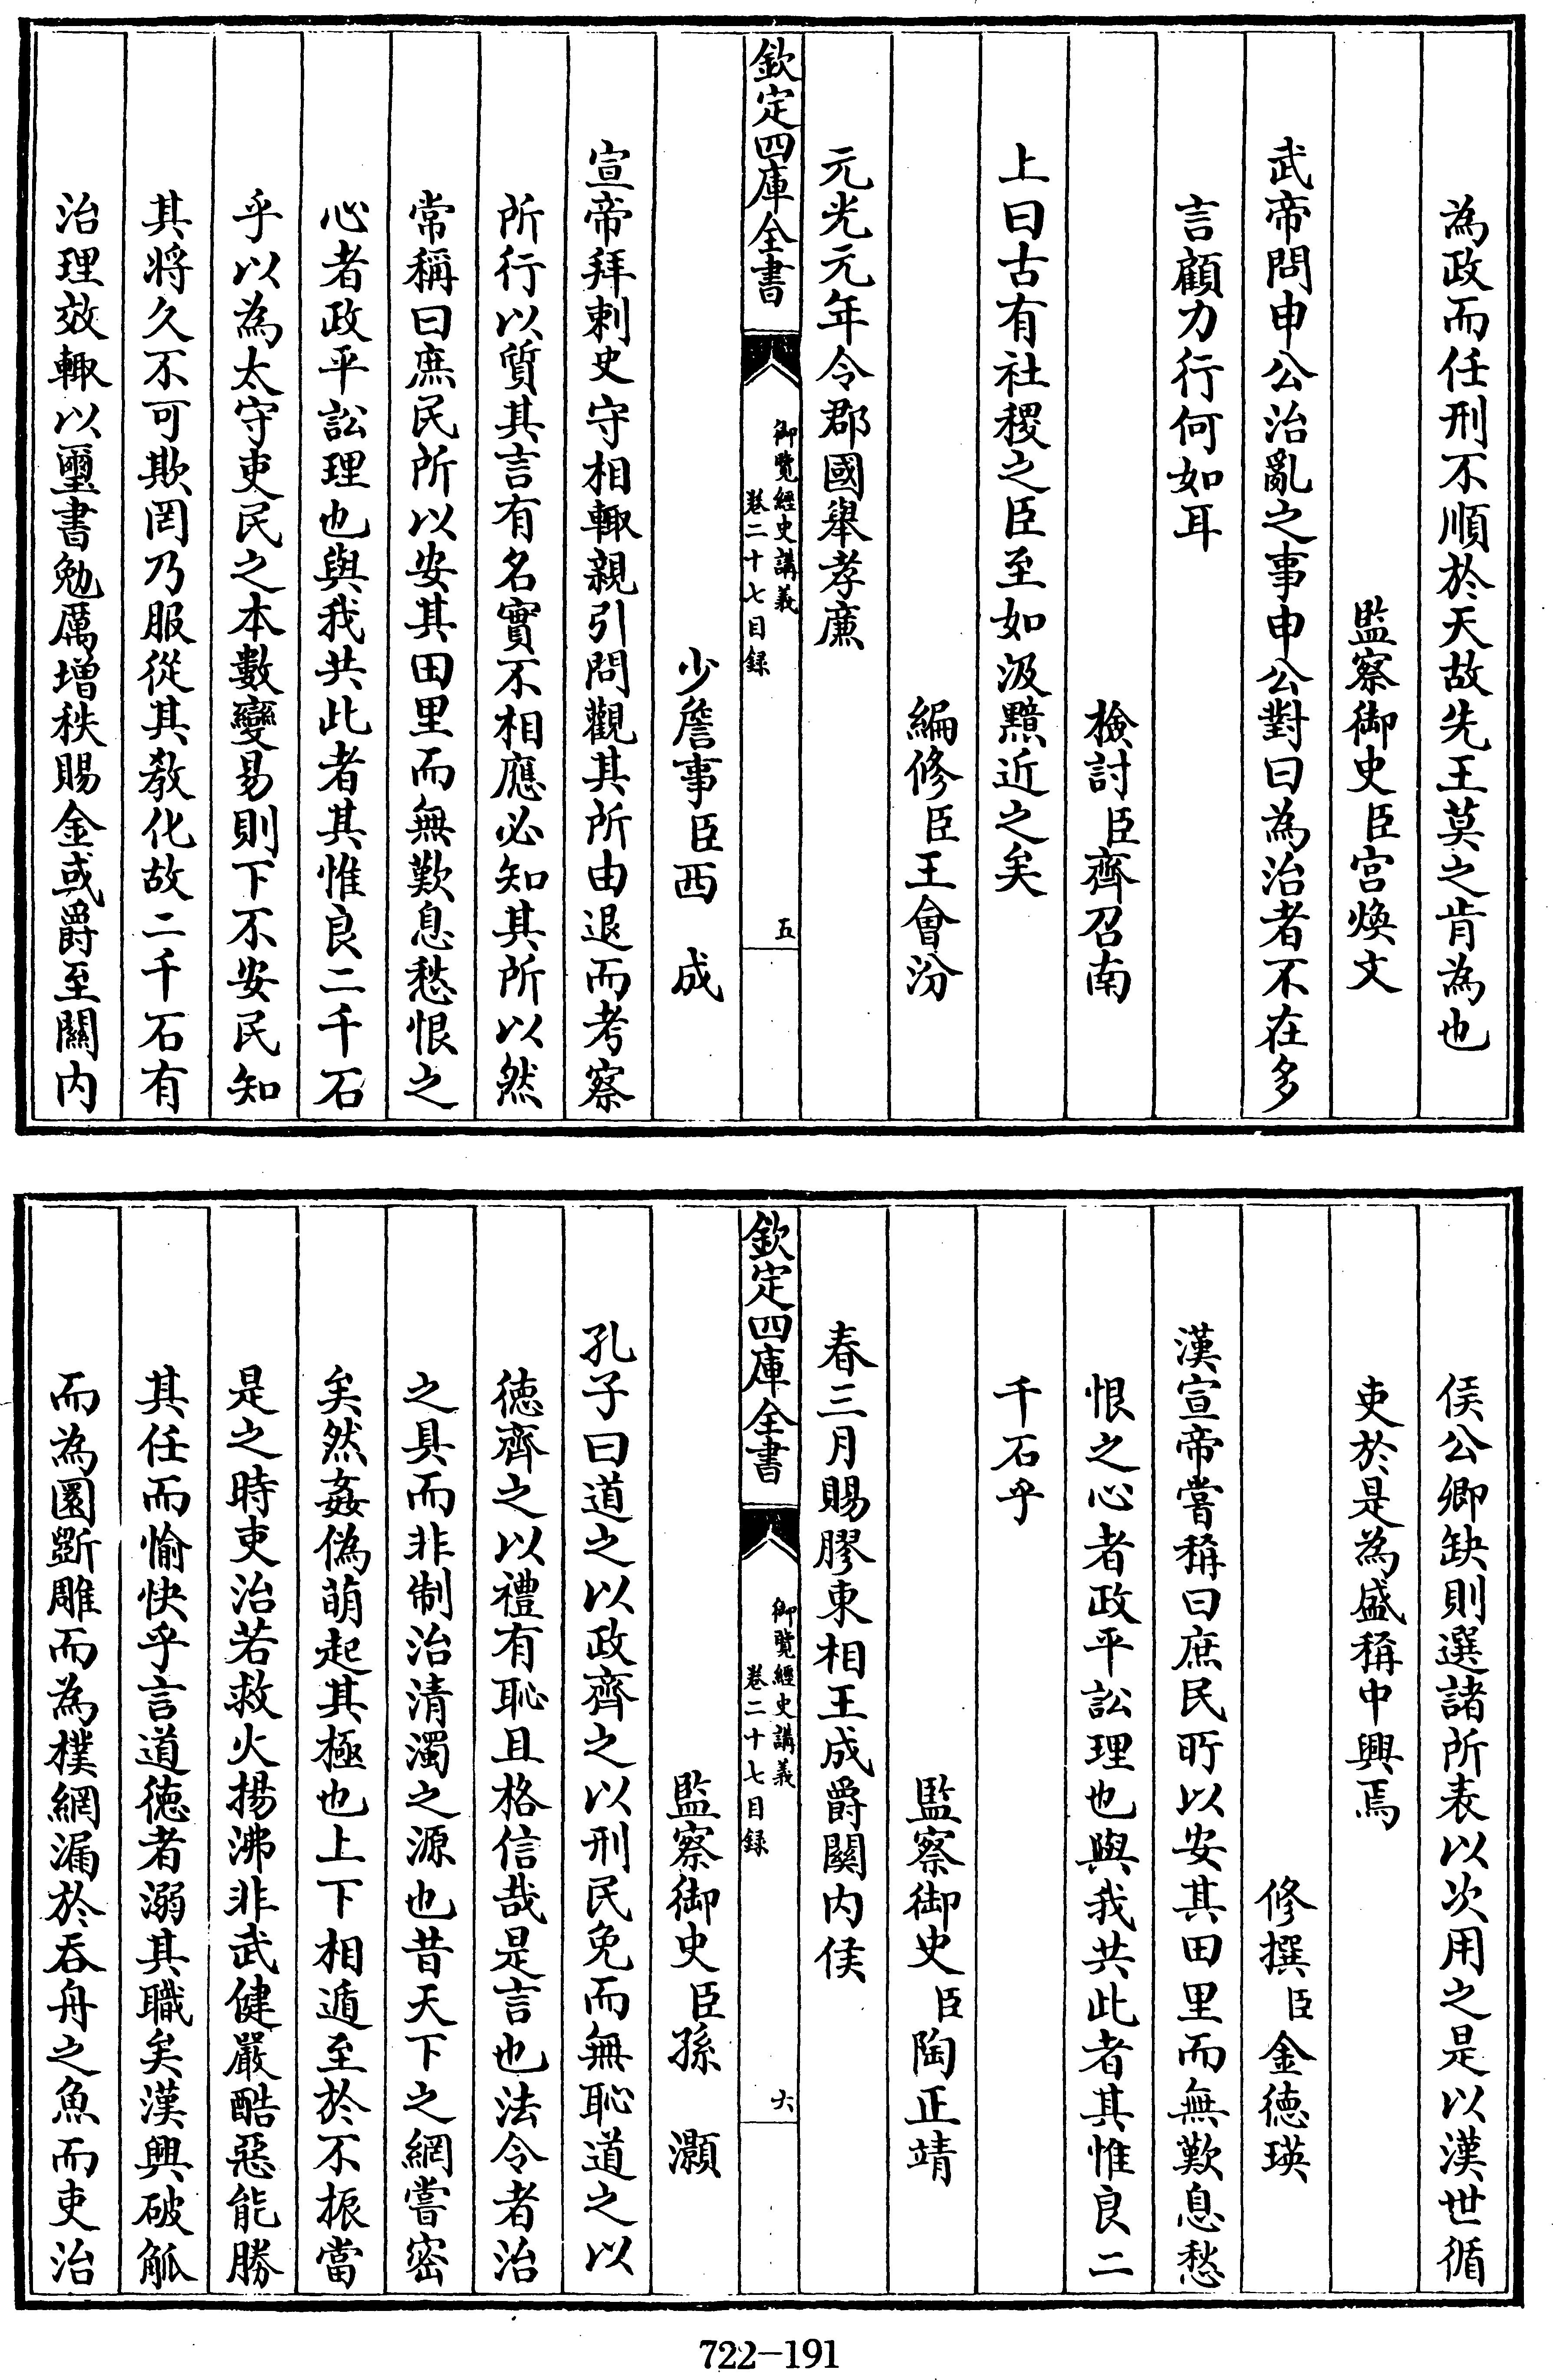 為政而任刑不順於天故先王莫之肯為也
監察御史臣宫煥文
武帝問申公治亂之事申公對曰為治者不在多
言顧力行何如耳
檢討臣齊召南
上曰古有社稷之臣至如汲黯近之矣
編修臣王會汾
元光元年令郡國舉孝廉
欽定四庫全書
御覽經史講義
卷二十七目録
五
少詹事臣西成
宣帝拜刺史守相輙親引問觀其所由退而考察
所行以質其言有名實不相應必知其所以然
常稱曰庶民所以安其田里而無歎息愁恨之
心者政平訟理也與我共此者其惟良二千石
乎以為太守吏民之本數變易則下不安民知
其將久不可欺罔乃服從其教化故二千石有
治理效輙以璽書勉厲增秩賜金或爵至關内
侯公卿缺則選諸所表以次用之是以漢世循
吏於是為盛稱中興焉
修撰臣金德瑛
漢宣帝嘗稱曰庶民所以安其田里而無歎息愁
恨之心者政平訟理也與我共此者其惟良二
千石乎
監察御史臣陶正靖
春三月賜膠東相王成爵關内侯
欽定四庫全書
御覽經史講義
卷二十七目録
六
監察御史臣孫灝
孔子曰道之以政齊之以刑民免而無恥道之以
徳齊之以禮有恥且格信哉是言也法令者治
之具而非制治清濁之源也昔天下之網嘗密
矣然姦偽萌起其極也上下相遁至於不振當
是之時吏治若救火揚沸非武健嚴酷惡能勝
其任而愉快乎言道徳者溺其職矣漢興破觚
而為圜斵雕而為樸網漏於吞舟之魚而吏治
722-191